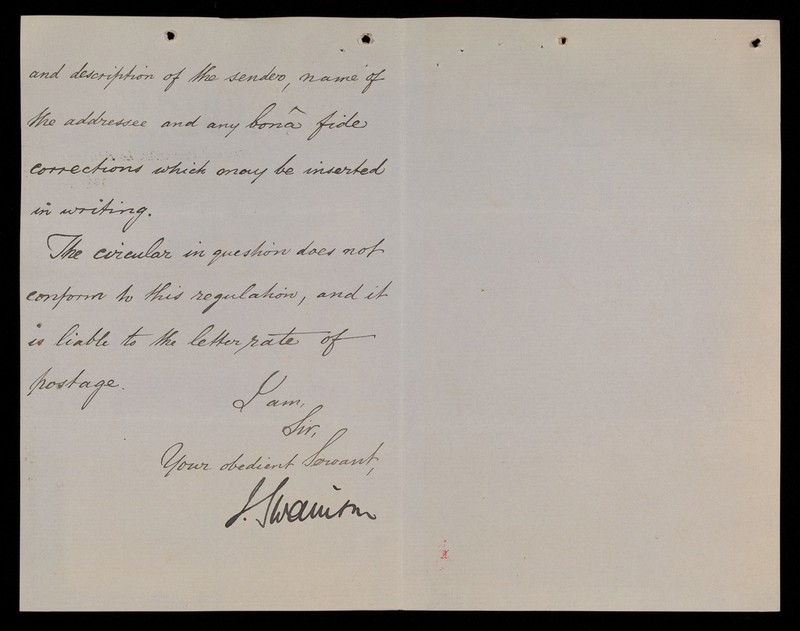 and description of the sender, name of
the addressee and any bonâ fide
corrections which may be inserted
in writing.
The circular in question does not
conform to this regulation, and it
is liable to the letter rate of
postage.
I am,
Sir,
Your obedient Servant,
J. Swainson